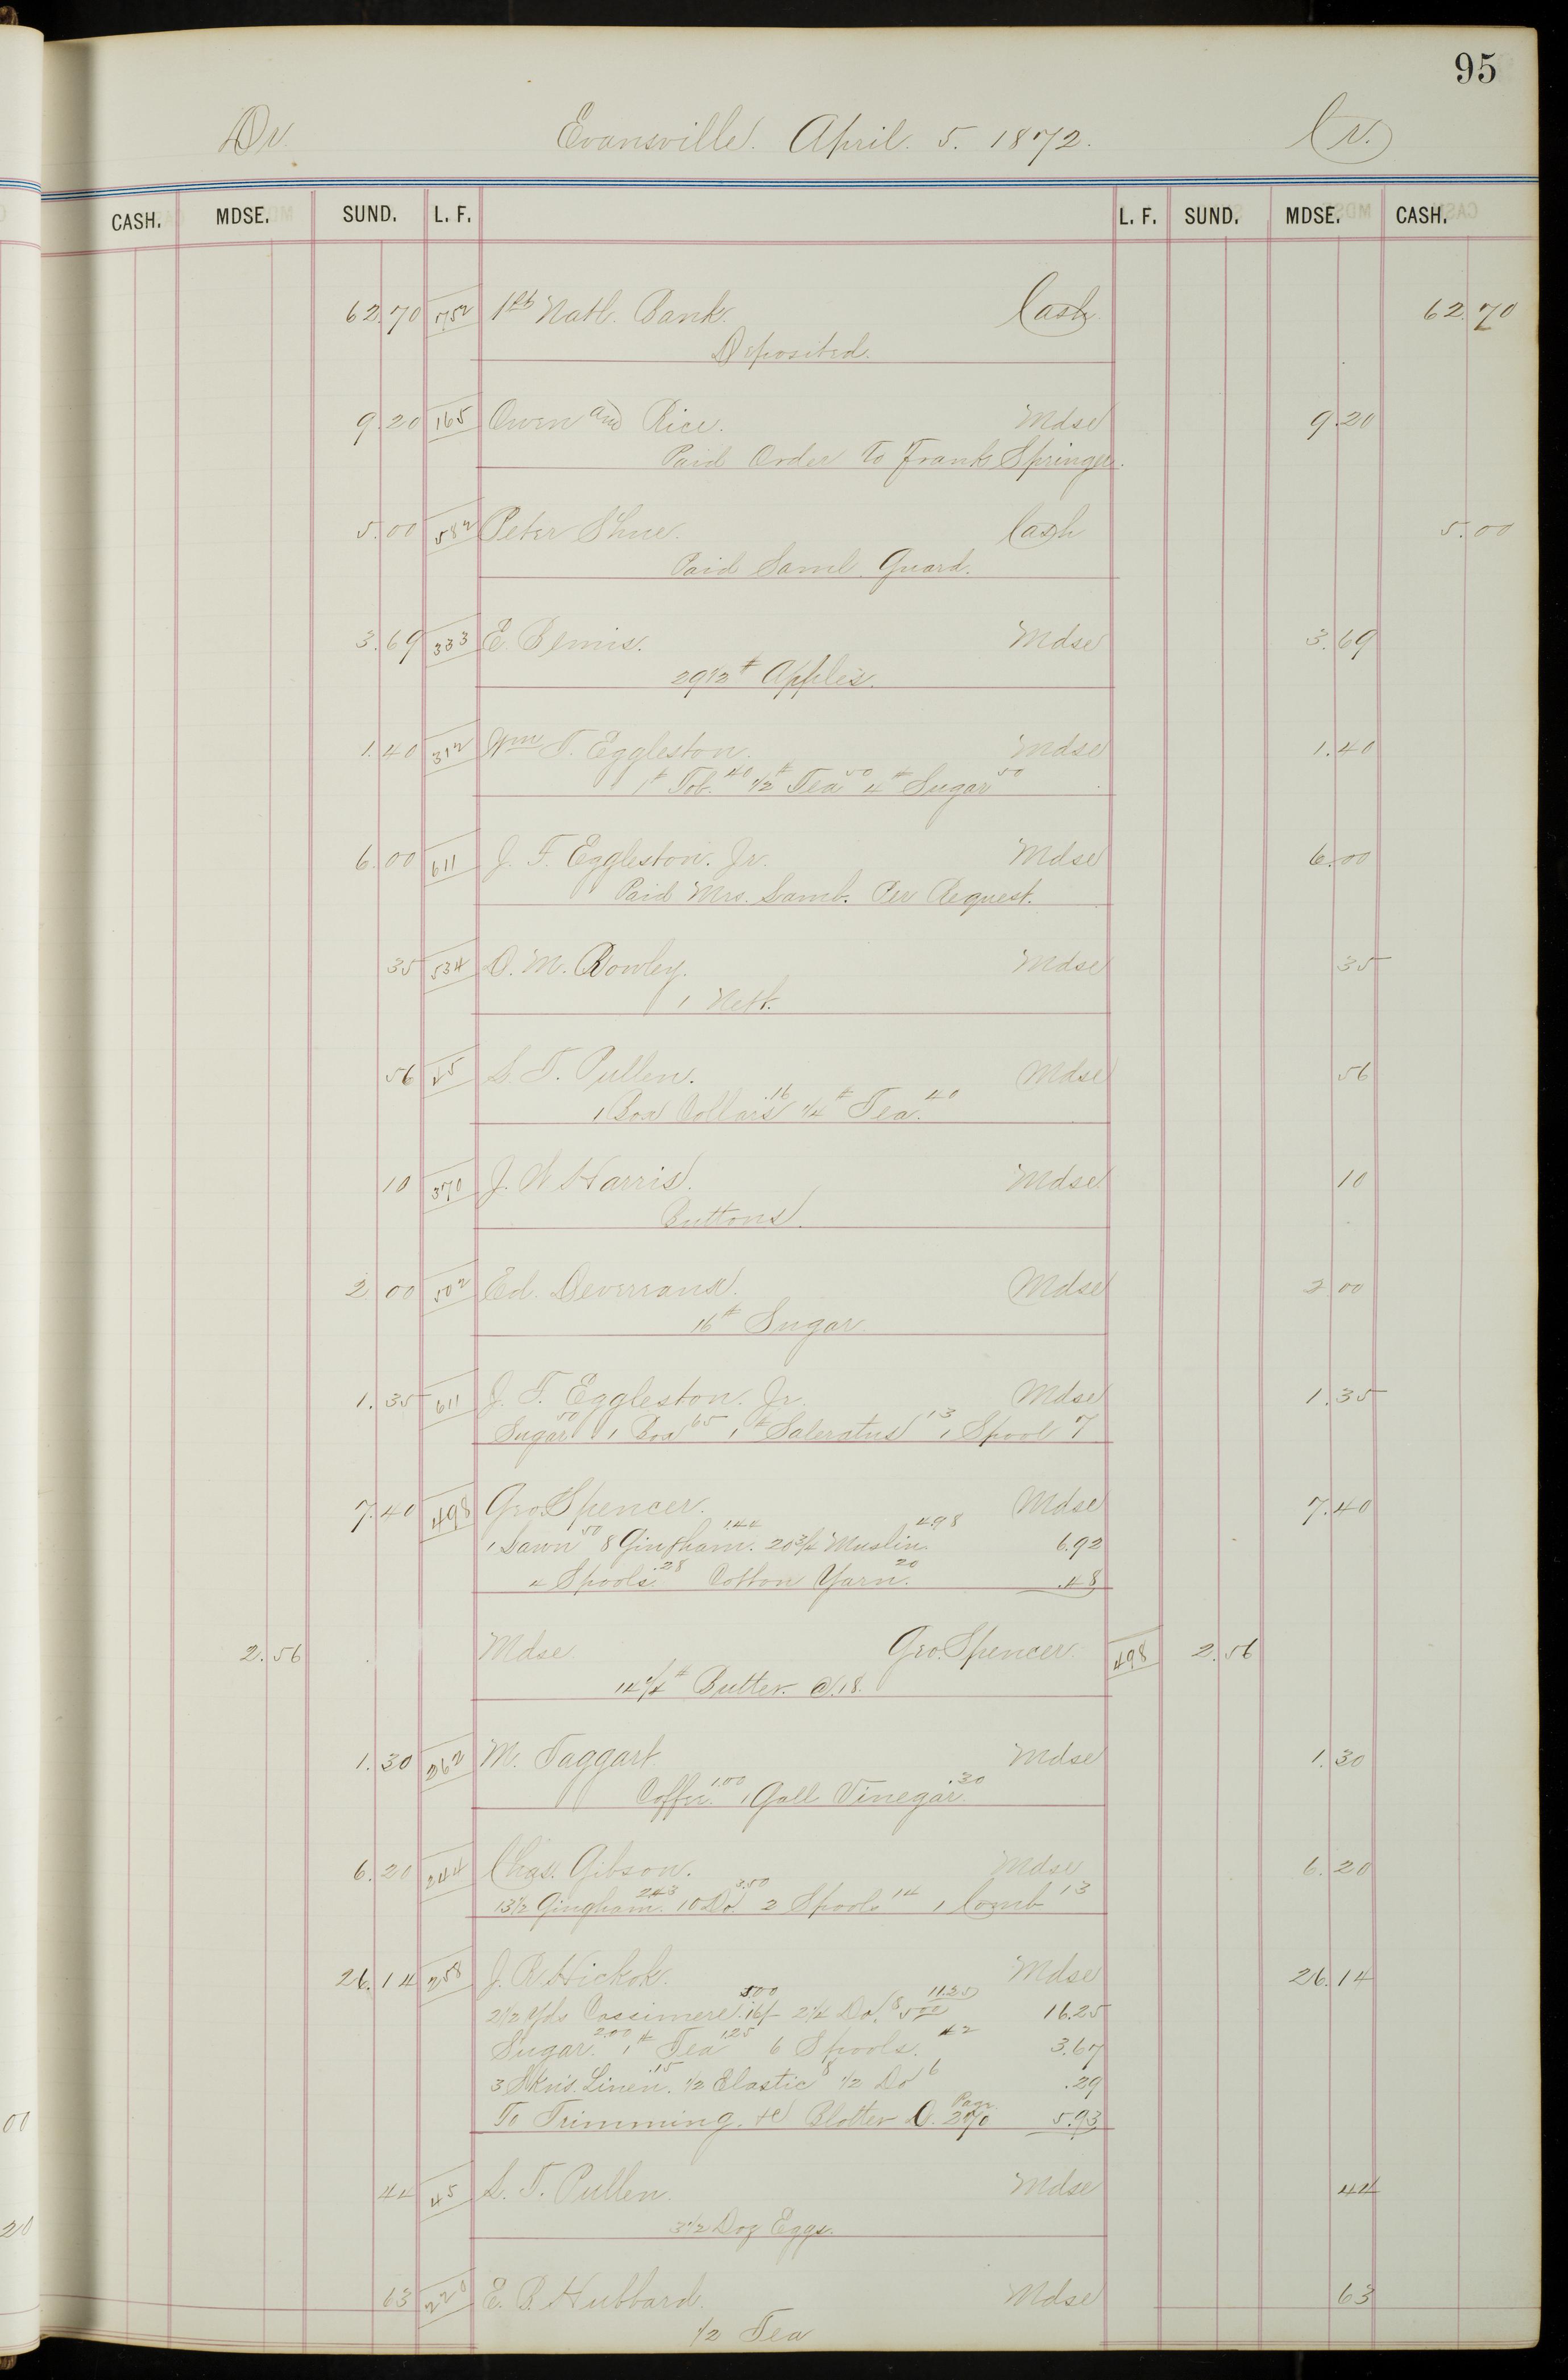 95
Dr. Evansville. April. 5. 1872. Cr.
CASH. MDSE. SUND. L. F. L. F. SUND. MDSE. CASH.
62.70 752 1st Natl. Bank. Cash 62.70
Deposited.
9.20 165 Owen and Rice. Mdse 9.20
Paid Order To Frank Springer.
5.00 582 Peter Shue. Cash 5.00
Paid Saml. Guard.
3.69 333 E. Bemis. Mdse 3.69
29 1/2 # Apples.
1.40 312 Wm T. Eggleston. Mdse 1.40
1# Tob. 40 1/2# Tea 50 4# Sugar 50
6.00 611 J. F. Eggleston. Jr. Mdse 6.00
Paid Mrs. Lamb. Per Request.
35 534 D. M. Rowley. Mdse 35
1
56 45 S. T. Pullen. Mdse 56
1 Box Collars .16 1/4# Tea. 40
10 370 J. W Harris. Mdse 10
Buttons.
2 00 502 Ed. Mdse 2 00
16# Sugar
1.35 611 J. F. Eggleston. Jr. Mdse 1.35
Sugar 50 1 Box 65 1# Saleratus 13 1 Spool 7
7.40 498 Geo. Spencer. Mdse 7.40
1 Lawn 50 8 Gingham. 1.44 20 3/4 Muslin. 4.98 6.92
4 Spools. .28 Cotton Yarn. 20 .48
2.56 Mdse. Geo. Spencer. 498 2.56
14 1/4# Butter. @.18.
1.30 262 M. Taggart Mdse 1.30
Coffee. 1.00 1 Gall Vinegar. .30
6.20 244 Chas. Gibson. Mdse 6.20
13 1/2 Gingham. 2.43 10 Do. 3.50 2 Spools 14 1 Comb 13
26.14 258 J. R. Hickok. Mdse 26.14
2 1/2 Yds Cassimere. 16/ 5.00 2 1/4 Do. 5 00 11.25 16.25
Sugar. 2.00 1# Tea 1.25 6 Spools. 42 3.67
3 Skns. Linen. .15 1/2 Elastic 8 1/2 Do 6 .29
To Trimming. &c Blotter D. Page. 270 5.93
44 45 S. T. Pullen. Mdse 44
3 1/2 Doz Eggs.
63 220 E. B. Hubbard. Mdse 63
1/2 Tea
00
20